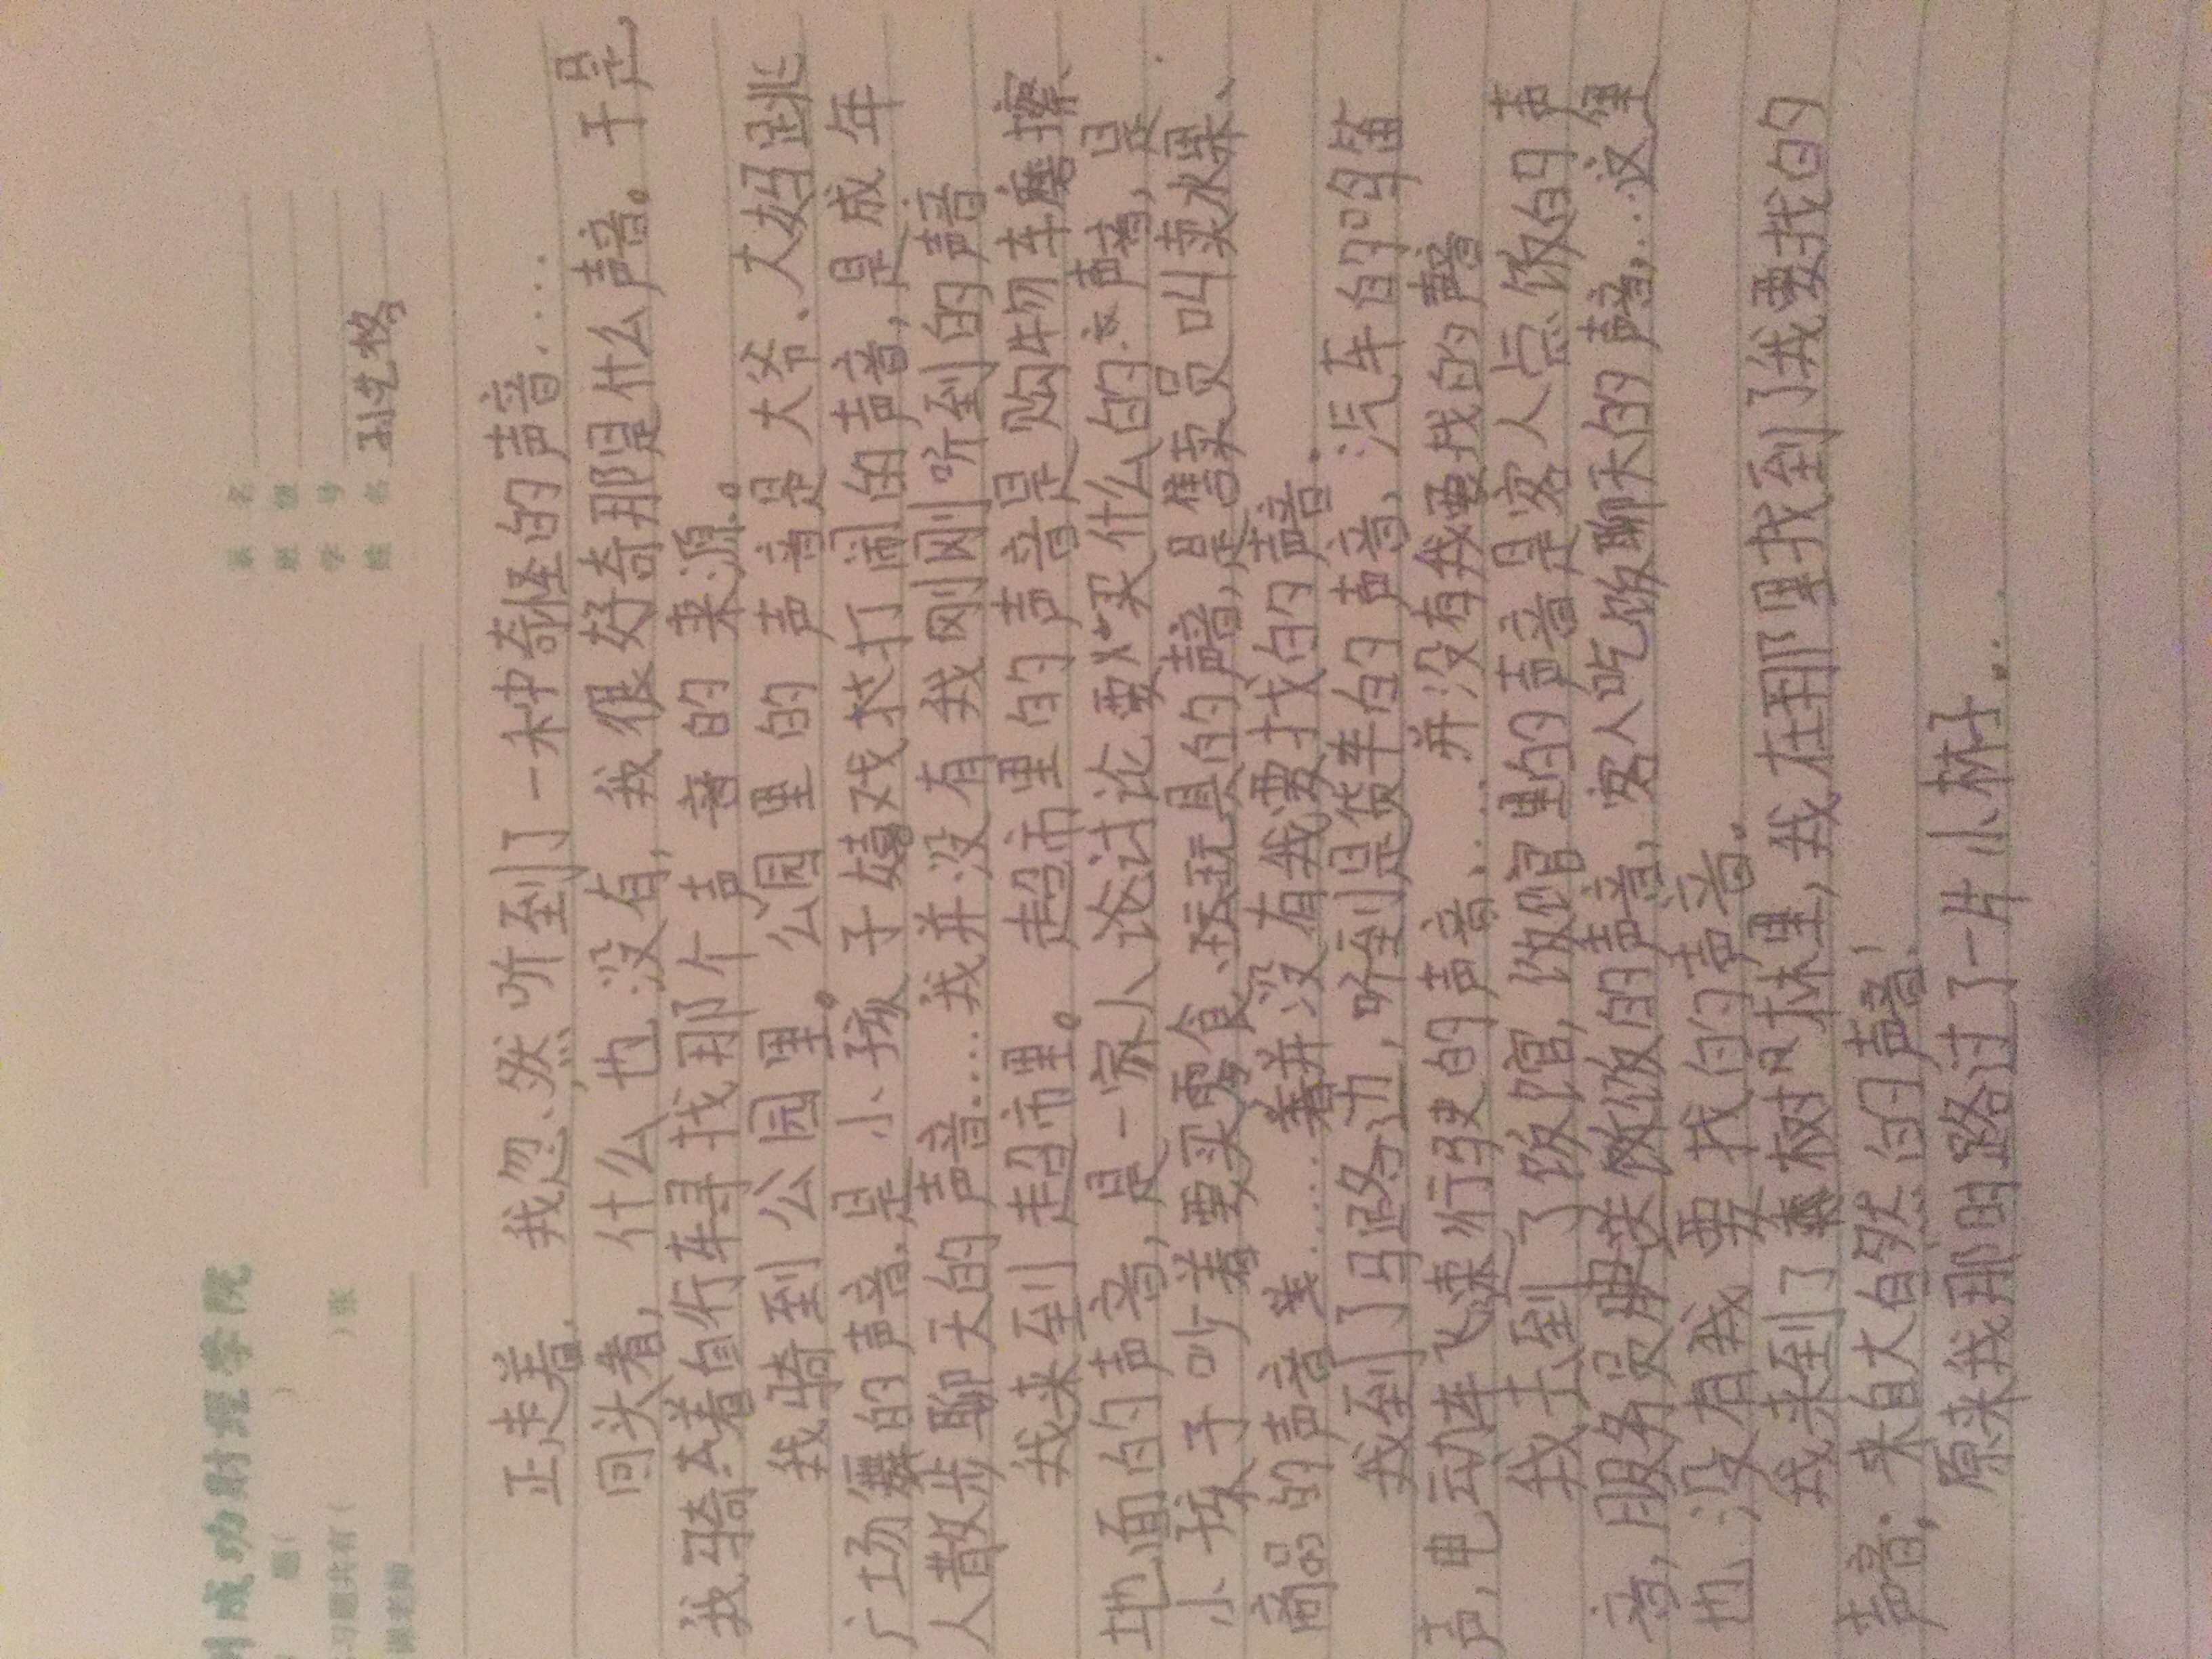 州成功财经学院
系 名
班 级
题( )
学 号
习题共有( )张
姓 名 孙艺牧
课老师
正走着,我忽然听到了一种奇怪的声音......
回头看,什么也没有,我很好奇那是什么声音。于是,
我骑着自行车寻找那个声音的来源。
我骑到公园里。公园里的声音是大爷.大妈跳
广场舞的声音,是小孩子嬉戏打闹的声音,是成年
人散步聊天的声音......我并没有我刚刚听到的声音
我来到超市里。超市里的声音是购物车磨擦
地面的声音,是一家人讨论要买什么的声音,是
小孩子吵着要买零食、玩具的声音,是售卖员叫卖水果、
商品的声音......并没有我要找的声音.
我到了马路边,听到是货车的声音,汽车的鸣笛
声,电动车飞速行驶的声音......并没有我要找的声音
我去到了饭馆,饭馆里的声音是客人点饭的声
音,服务员的声音,客人吃饭聊天的声音,...这里
也没有我要找的声音。
我来到了树林里,我在那里找到了我要找的
声音:来自大自然的声音!
原来我那时路过了一片小林子...